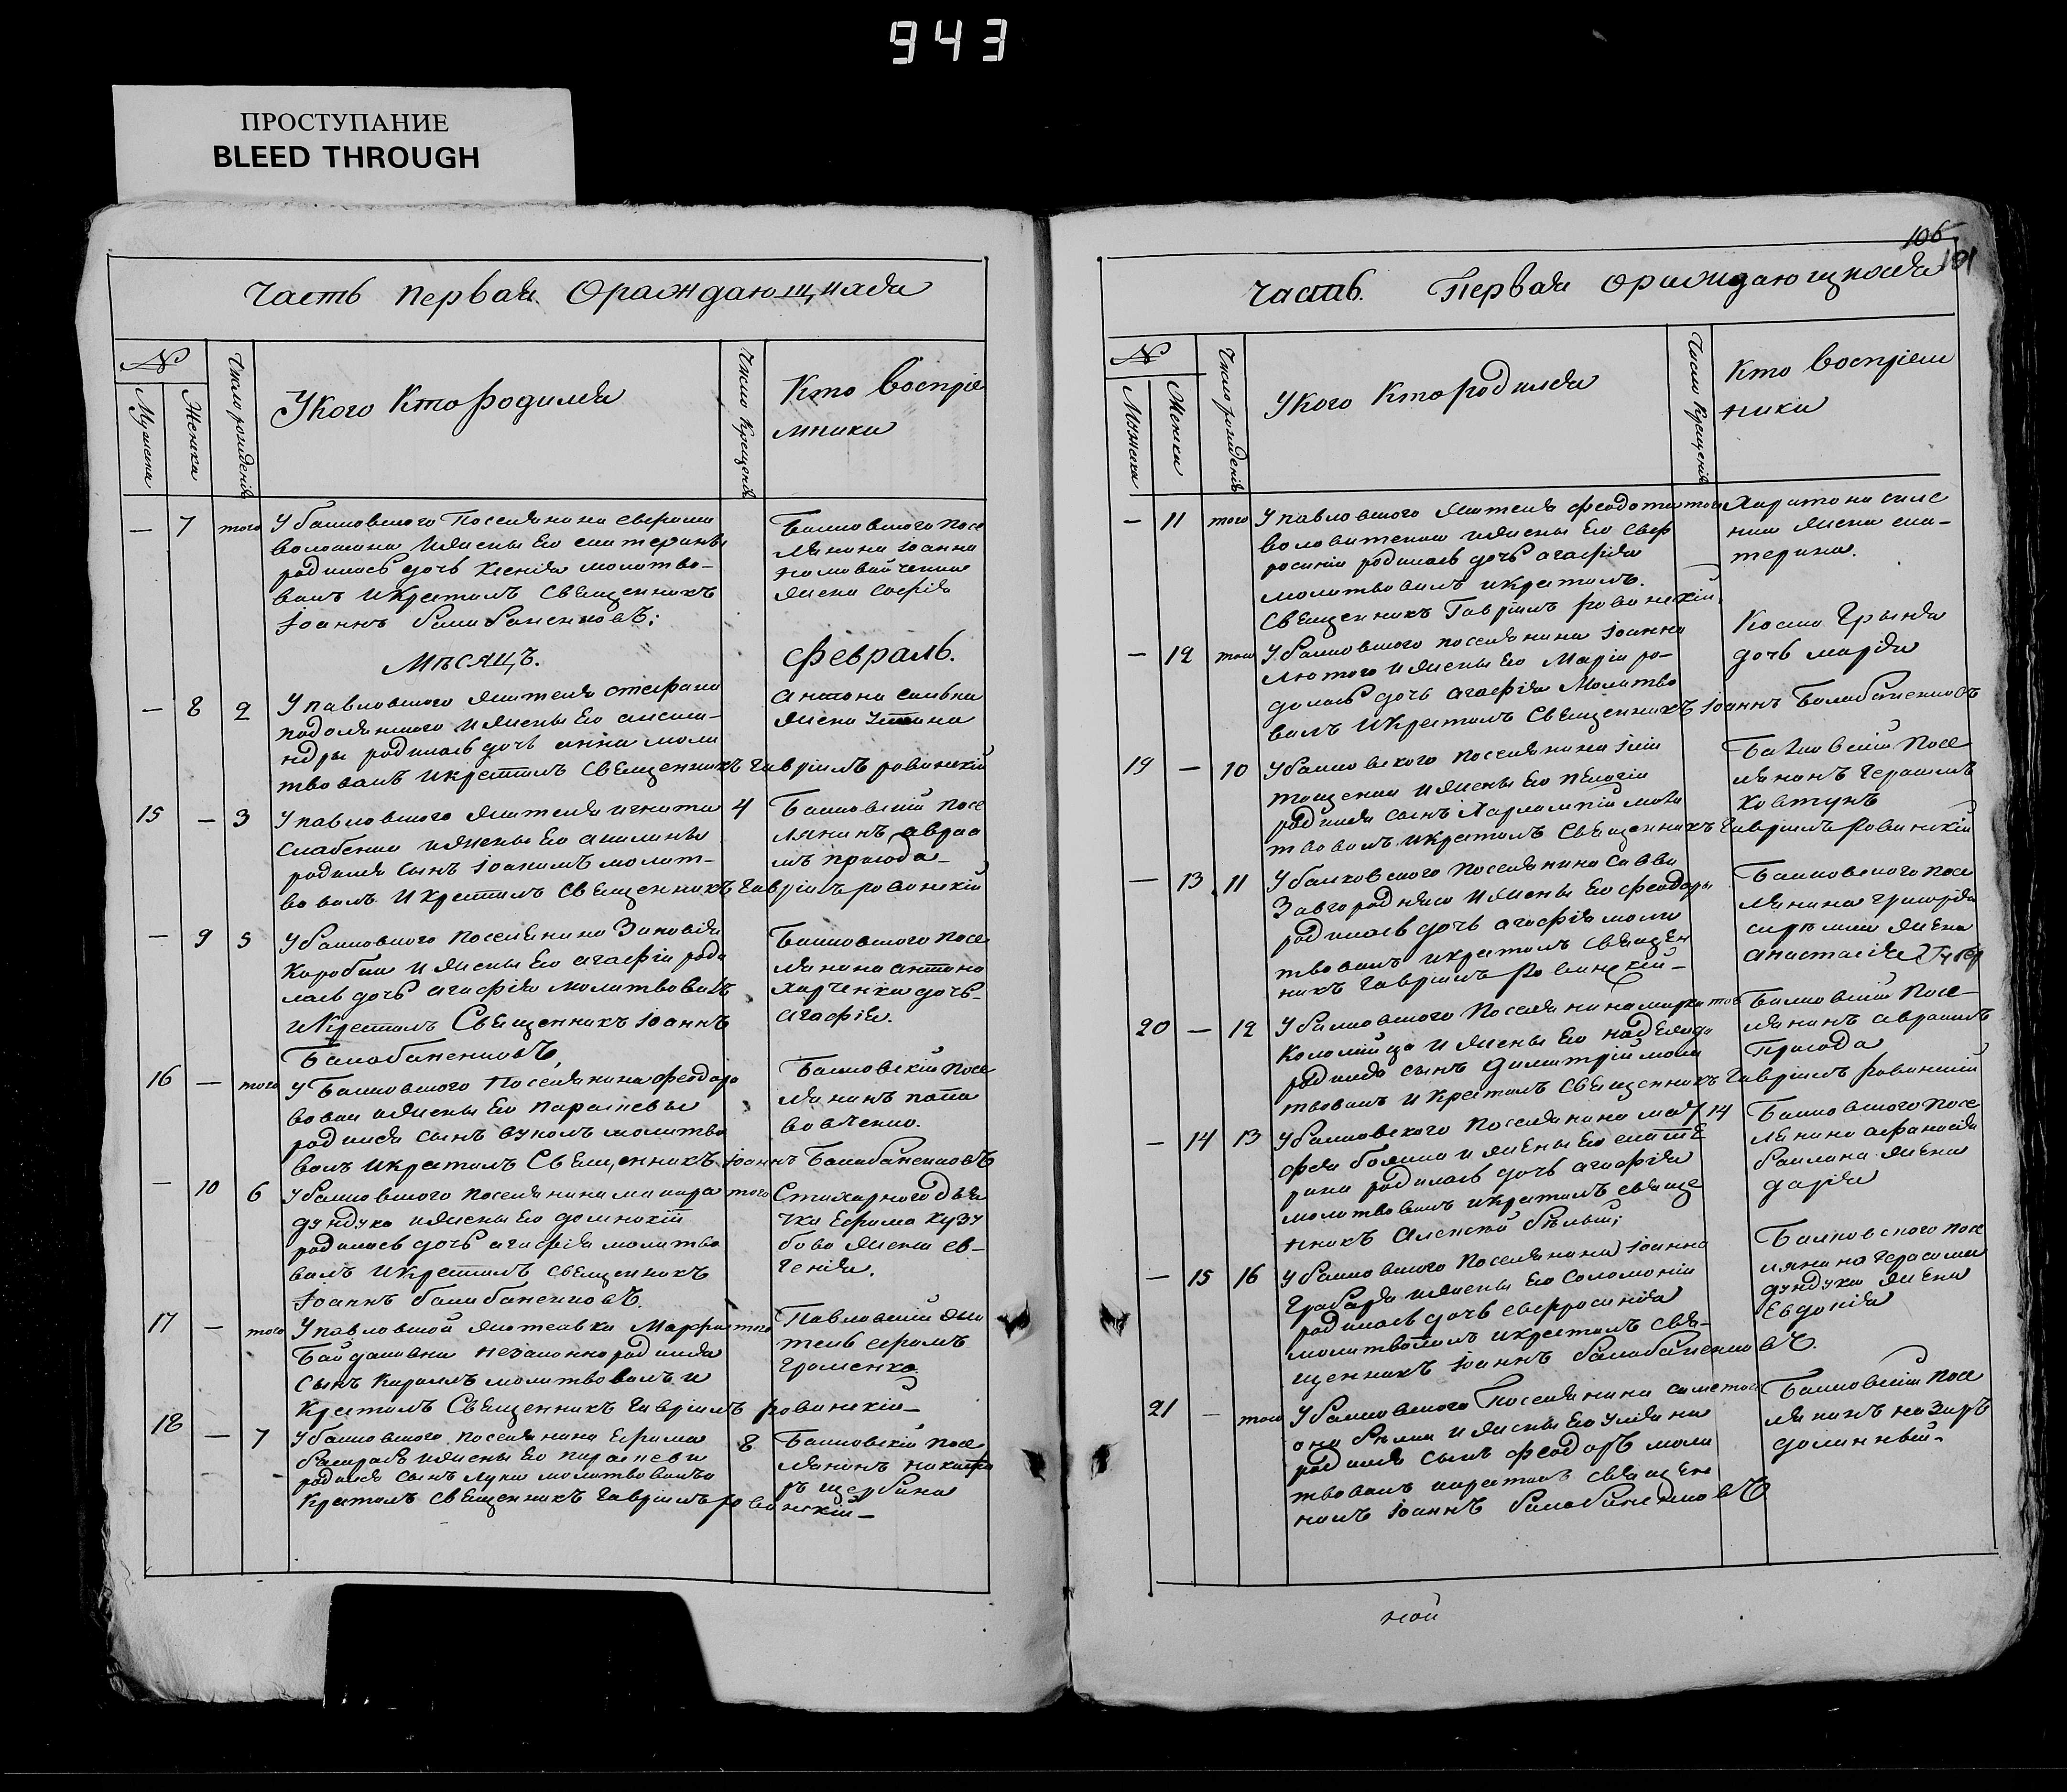 943
ПРОСТУПАНИЕ
BLEED THROUGH
Часть первая О раждающихся
№
Мужеска
Женска
Число рождения
У кого кто родился
Число крещения
Кто восприе
мники
— 7 того У башовского поселянина
волошина и жены его екатерины
родилась дочь ксения молитво-
валъ и крестилъ священникъ
Iоаннъ балабаненковъ;
Башовского посе
лянина iоанна
жена софия
Мѣсяцъ. Февраль.
— 8 2 У павловского жителя стефана
подолянского и жены его алекса-
ндры родилась дочь анна моли
твовалъ и крестилъ священникъ гавриилъ ровинский
антона
жена устина
15 — 3 У павловского жителя игната 4
слабенка и жены его акилины
родился сынъ iоакимъ молит-
вовалъ и крестилъ священникъ гавриилъ ровинский
Башовский посе
лянинъ авраа
мъ пригода-
— 9 5 У башовского поселянина Зиновия
Коробки и жены его агафии роди
лась дочь агафия молитвовалъ
и крестилъ Священникъ iоаннъ
Балабаненковъ,
Башовского посе
лянина антона
харченка дочь-
агафия.
16 — того У Башовского поселянина феодора
вовки и жены его параскевы
родился сынъ вуколъ молитво
валъ и крестилъ Священникъ iоаннъ Балабаненковъ
Башовский посе
лянинъ
вовченко.
— 10 6 У башовского поселянина макара того
дундука и жены его домникии
родилась дочь агафия молитво
валъ и крестилъ священникъ
Iоаннъ балабаненковъ.
Стихарного дья
чка Ефима кузу
бова жена ев-
гения.
17 — того У павловской жителъки Марфы того
Байдаковны незаконно родился
сынъ кирилъ молитвовалъ и
крестилъ Священникъ гавриилъ ровинский-
Павловский жи
тель ефимъ
громенко
18 — 7 У башовского поселянина Ефима 8
и жены его параскеви
родился сынъ лука молитвовалъ и
крестилъ священникъ гавриилъ ровинский-
Башовский посе
лянинъ никифо
ръ щербина
106
101
Часть. Первая О раждающихся
№
Мужеска
Женска
Число рождения
У кого кто родился
Число крещения
Кто восприем
ники
— 11 того У павловского жителя феодота того
воловитенка и жены его Евф
росинии родилась дочь агафия
молитвовалъ и крестилъ.
Священникъ Гавриилъ ровинский.
Харитона
жена ека-
терина.
— 12 того У башовского поселянина iоанна
лютого и жены его Марии ро-
дилась дочь агафия Молитво
валъ и крестилъ Священникъ iоаннъ Балабаненковъ
Косма Грыня
дочь мария
19 — 10 У башовского поселянина
тощенка и жены его
родился сынъ Харлампий моли
твовалъ и крестилъ Священникъ гавриилъ ровинский
Башовский посе
лянинъ герасимъ
ковтунъ
— 13 11 У башковского поселянина Саввы
Завгороднего и жены его феодоры
родилась дочь агафия моли
твовалъ и крестилъ священ
никъ гавриилъ ровинский-
Башовского посе
лянина григория
жена
анастасия
20 — 12 У башовского поселянина марка того
Коломийца и жены его надежды
родился сынъ Димитрий моли
твовалъ и крестилъ Священникъ гавриилъ ровинский
Башовский посе-
лянинъ авраамъ
Пригода
— 14 13 У башовского поселянина мат 14
фея бойка и жены его екате
рины родилась дочь агафия
молитвовалъ и крестилъ священ
никъ Алексий бѣлый;
Башовского посе
лянина афанасия
жена
дария
— 15 16 У башовского поселянина iоанна
грабаря и жены его соломонии
родилась дочь евфросиния
молитвовалъ и крестилъ свя-
щенникъ iоаннъ балабаненковъ.
Башковского посе
лянина герасима
дундука жена
Евдокия
21 — того У башовского поселянина симе того
она бѣлки и жены его улияны
родился сынъ феодоръ моли
твовалъ и крестилъ священ
никъ iоаннъ балабаненковъ
Башовский посе
лянинъ назаръ
долинный-
ной